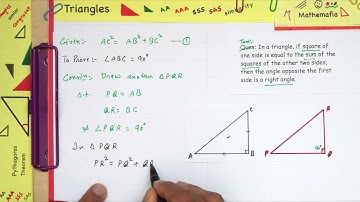 Triangles
AA AAA SSS SAS
Mathemafia
Given:- AC² = AB² + BC² — ①
To Prove:- ∠ABC = 90°
Const:- Draw another △PQR
s.t. PQ = AB
QR = BC
& ∠PQR = 90°
In △PQR
PR² = PQ² + QR
Ques:
Question: In a triangle, if square of
one side is equal to the sum of the
squares of the other two sides,
then the angle opposite the first
side is a right angle.
C
A
B
R
P
90°
Q
Pythagoras
Theorem